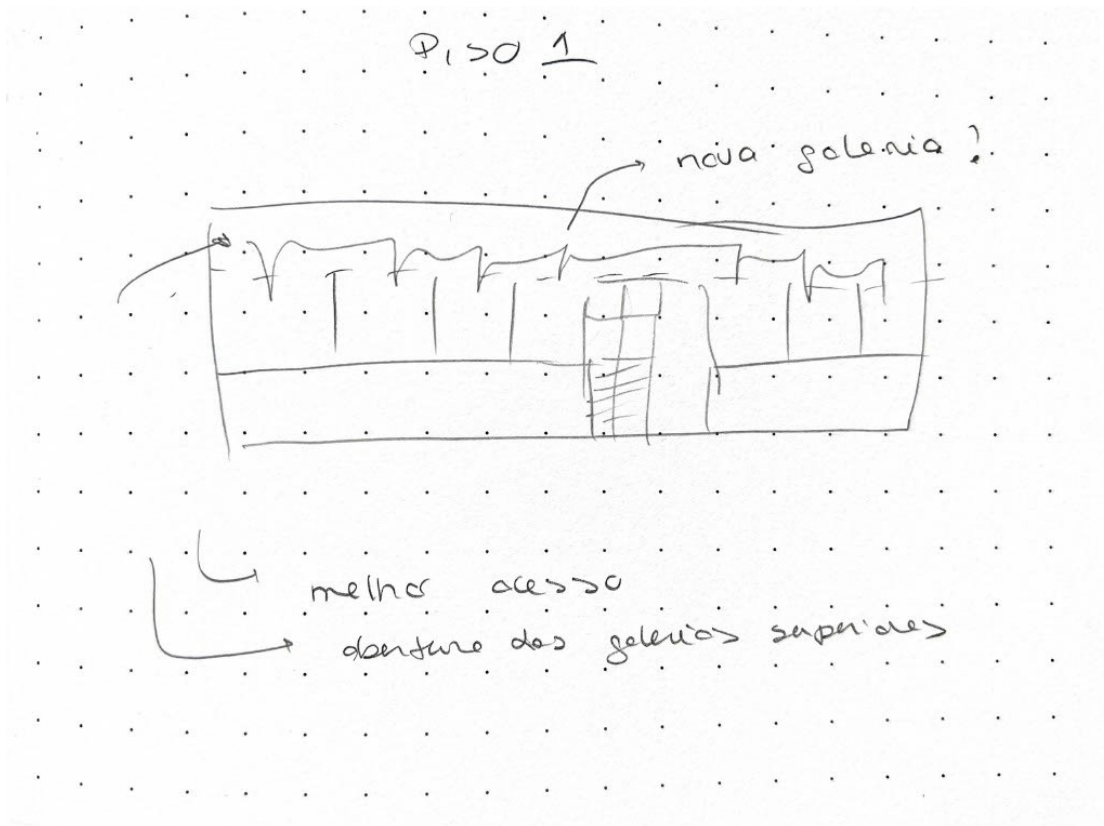 PISO 1
nova galeria?
melhor acesso
abertura das galerias superiores